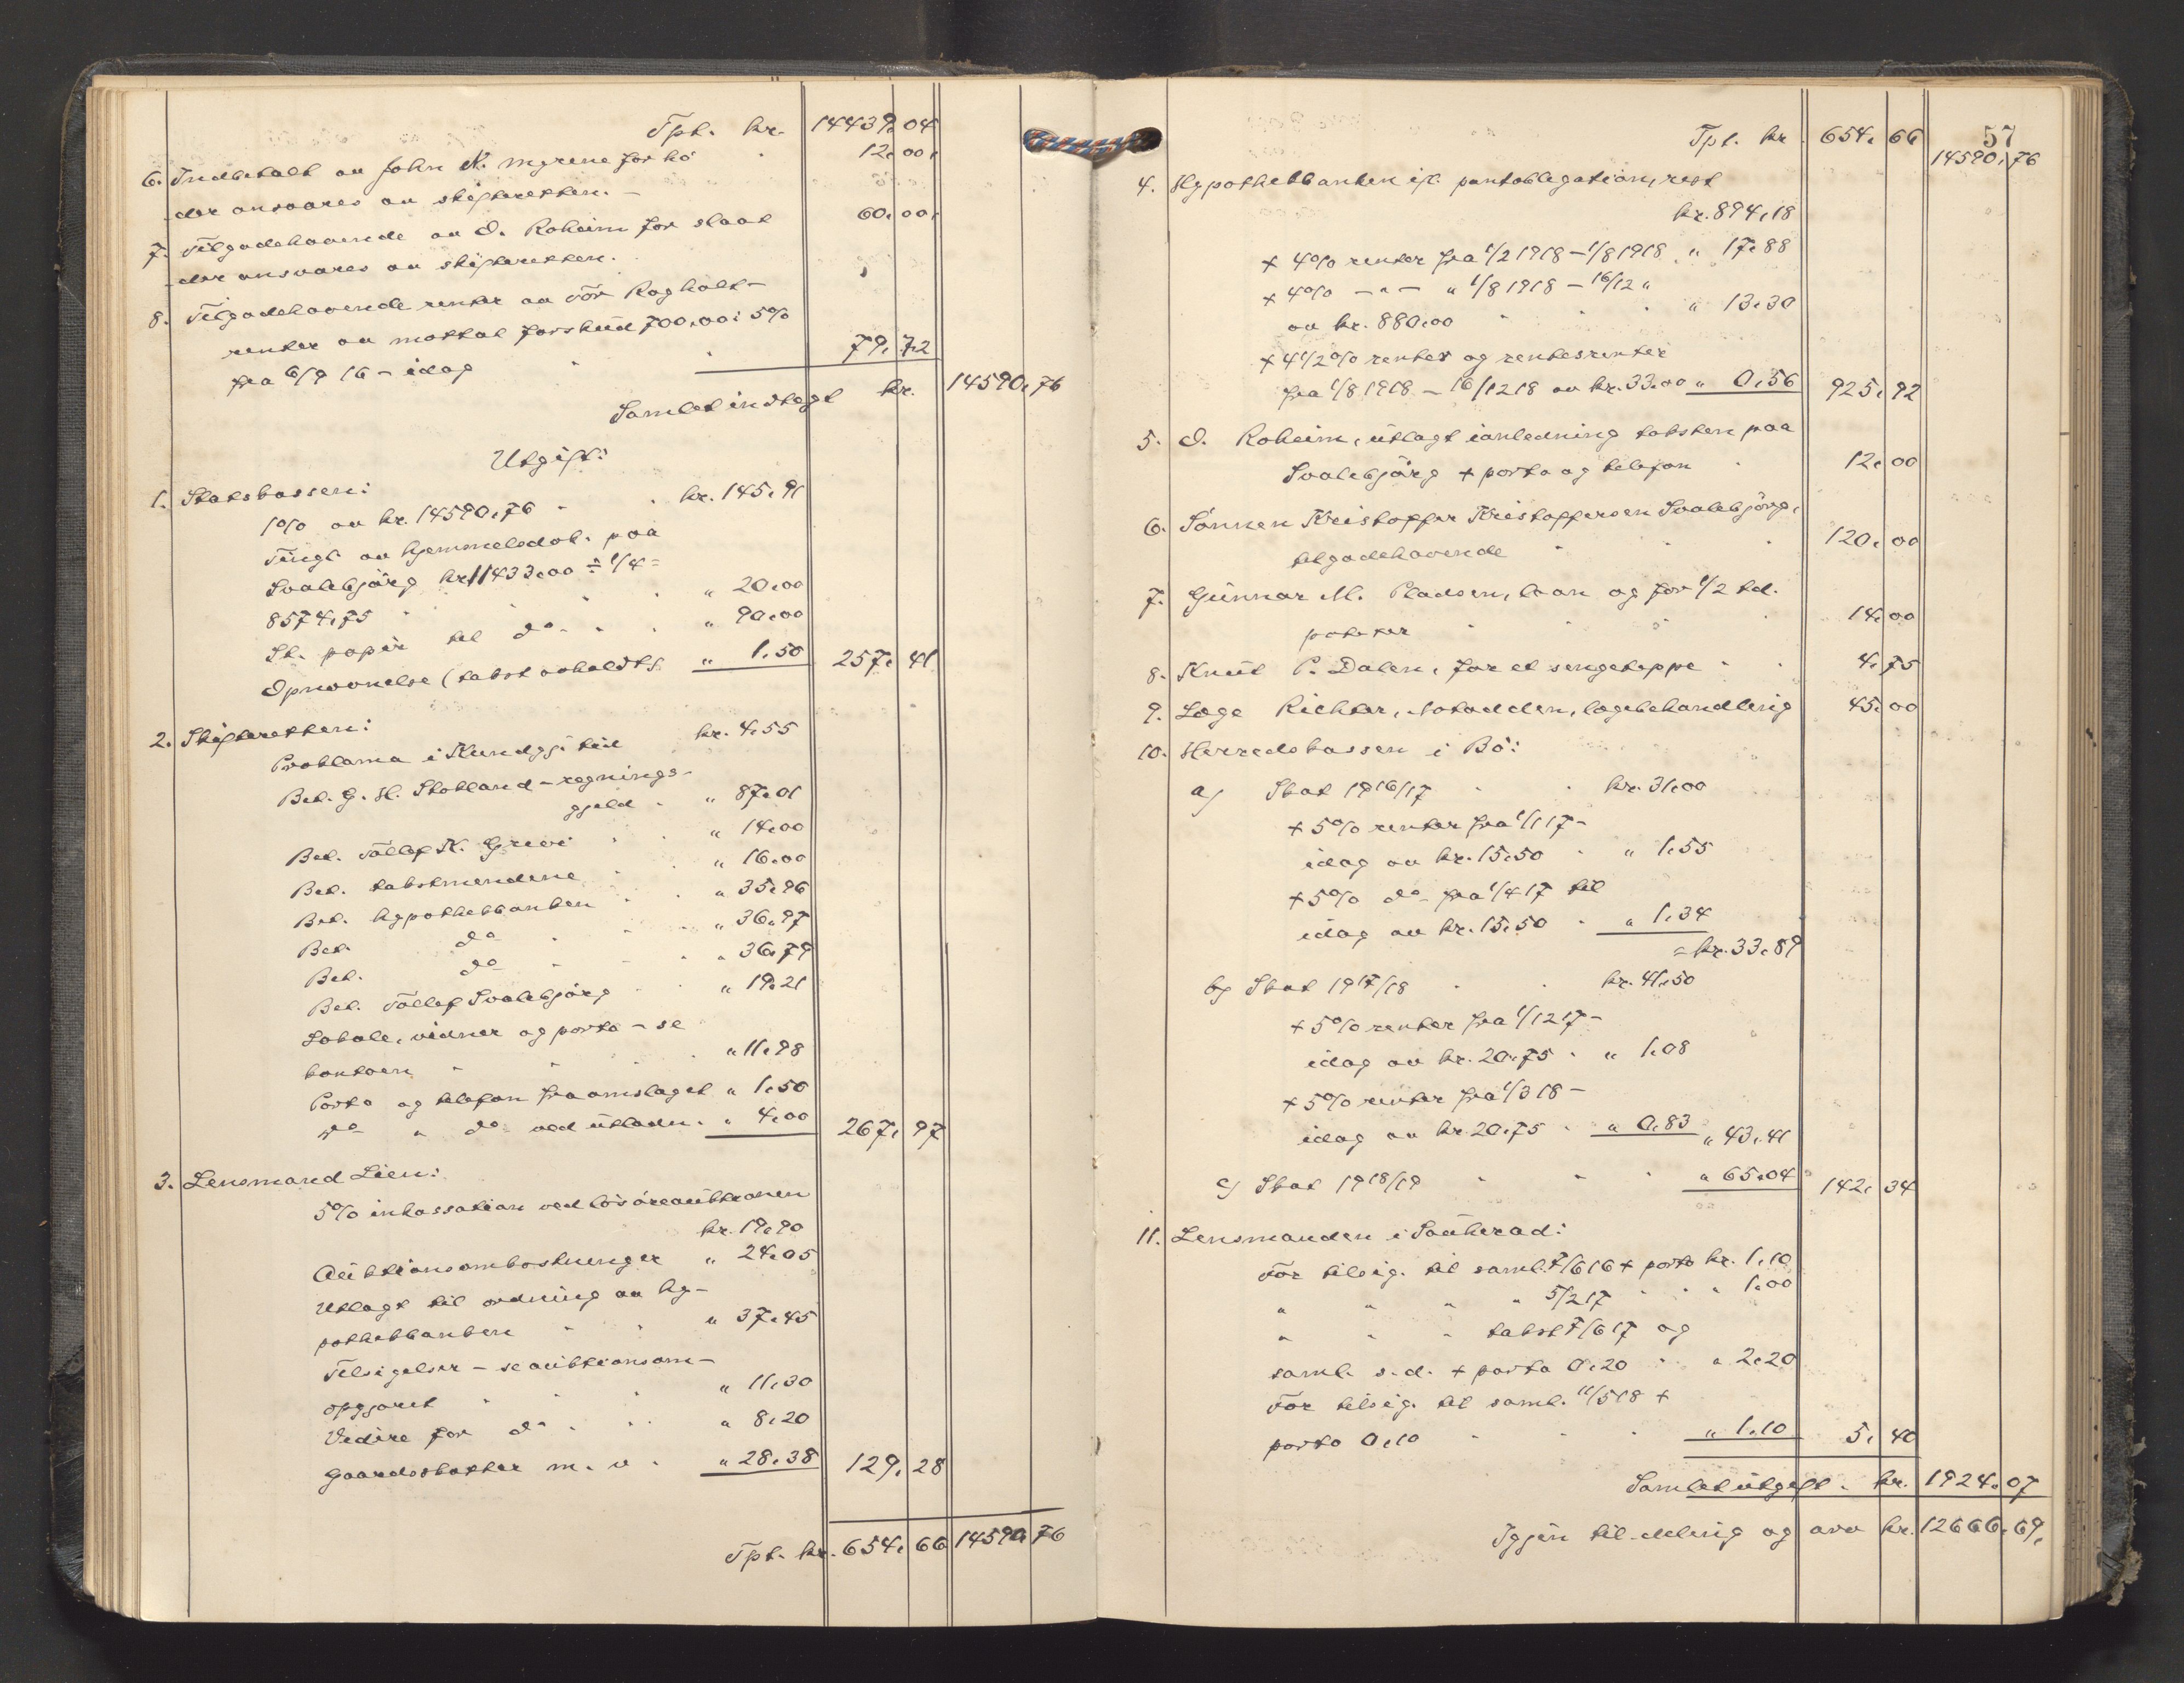 Tpt. kr. 14439,04
6. Indbetalt av John N. Myrene for hö " 12,00,
der ansvares av skifteretten. –
7. Tilgodehavende av O. Roheim for slaat 60,00,
der ansvares av skifteretten.
8. Tilgodehavende renter av Tor Ragholt-
renter av mottat forskud 700,00: 5%
fra 6/9 16 – idag " " 79,72
Samlet indtægt kr. 14590,76
Utgift:
1. Statskassen:
1% av kr. 14590,76 " . kr. 145,91
Tingl. av hjemmelsdok. paa
Svalebjörg kr. 11433,00 ÷ 1/4 =
8574,75 " " " „ 20,00
St. papir til do. " . „ 90,00
Opnævnelse (takst avholdts „ 1,50 257,41
2. Skifteretten:
Proklama i Kundgj. tid. kr. 4,55
Bet. G. H. Stokland – regnings-
gjeld . „ 87,01
Bet. Tollef K. Grivi . . „ 14,00
Bet. takstmændene . . „ 16,00
Bet. hypothekbanken . . „ 35,96
Bet. do " . „ 36,97
Bet. do " . „ 36,79
Bet. Tollef Svalebjörg . . „ 19,21
Lokale, vidner og porto – se
kontoen " " . „ 11,98
Porto og telefon fra omslaget „ 1,50
do „ do ved utlodn. „ 4,00 267,97
3. Lensmand Lien:
5% inkassation ved lösöreauktionen
kr. 19,90
Auktionsomkostninger „ 24,05
Utlagt til ordning av hy-
pothekbanken " " „ 37,45
Tilsigelser – se auktionsom-
opgjöret " " " „ 11,30
Vidére for do . . „ 8,20
Gaardsskatter m. v. . „ 28,38 129,28
Tpt. kr. 654,66 14590,76
57
Tpt. kr. 654,66 14590,76
4. Hypothekbanken ifl. pantobligation, rest
kr. 894,18
+ 4% renter fra 1/2 1918 – 1/8 1918 „ 17,88
+ 4% – „ – „ 1/8 1918 – 16/12 „
av kr. 880,00 " " „ 13,30
+ 4 1/2% renter og rentesrenter
fra 1/8 1918 – 16/12 18 av kr. 33,00 „ 0,56 925,92
5. O. Roheim, utlagt i anledning taksten paa
Svalebjörg + porto og telefon " 12,00
6. Sönnen Kristoffer Kristoffersen Svalebjörg,
tilgodehavende " " " 120,00
7. Gunnar M. Pladsen, laan og for 1/2 td.
poteter " " " 14,00
8. Knut P. Dalen, for et sengeteppe " . 4,75
9. Læge Richter, Notodden, lægebehandling 45,00
10. Herredskassen i Bö:
a) Skat 1916/17 " . kr. 31,00
+ 5% renter fra 1/1 17 –
idag av kr. 15,50 . „ 1,55
+ 5% do fra 1/4 17 til
idag av kr. 15,50 . „ 1,34
= kr. 33,89
b) Skat 1917/18 " . kr. 41,50
+ 5% renter fra 1/12 17 –
idag av kr. 20,75 . „ 1,08
+ 5% renter fra 1/3 18 –
idag av kr. 20,75 . „ 0,83 „ 43,41
c) Skat 1918/19 " " " „ 65,04 142,34
11. Lensmanden i Sauherad:
For tilsig. til saml. 7/6 16 + porto kr. 1,10
„ „ „ „ 5/2 17 " " „ 1,00
„ „ „ takst 7/6 17 og
saml. s.d. + porto 0,20 . „ 2,20
For tilsig. til saml. 11/5 18 +
porto 0,10 " " " „ 1,10 5,40
Samlet utgift . kr. 1924,07
Igjen til deling og arv kr. 12666,69,